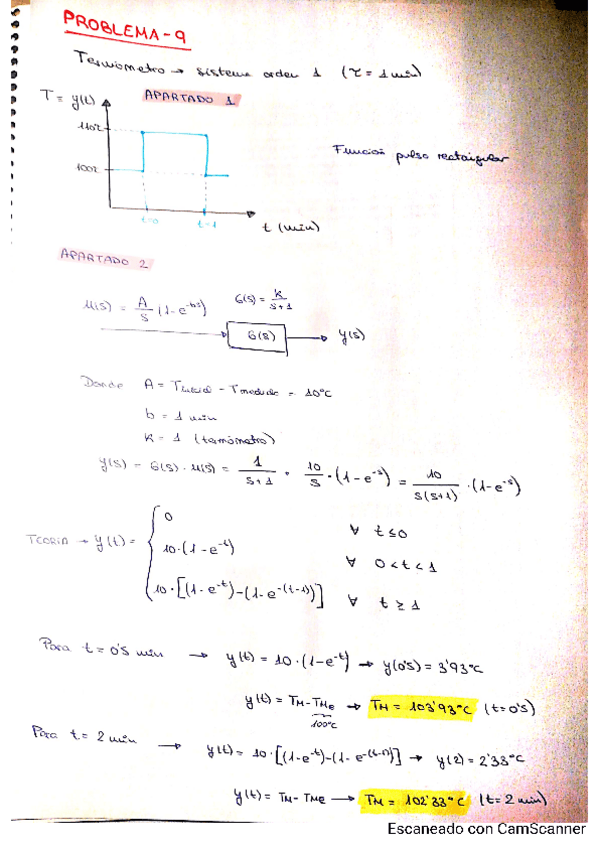 PROBLEMA-9
Termómetro → sistema orden 1 (τ = 1 min)
T = y(t)
APARTADO 1
110ºC
100ºC
t=0
t=1
t (min)
Función pulso rectangular
APARTADO 2
u(s) = A/s (1-e^-bs)
G(s) = K/s+1
G(s)
y(s)
Donde A = Tinicial - Tmedida = 10ºC
b = 1 min
K = 1 (termómetro)
y(s) = G(s) · u(s) = 1/s+1 · 10/s · (1-e^-s) = 10/s(s+1) · (1-e^-s)
TEORÍA → y(t) =
0 ∀ t≤0
10·(1-e^-t) ∀ 0<t<1
10·[(1-e^-t)-(1-e^-(t-1))] ∀ t≥1
Para t = 0'5 min → y(t) = 10·(1-e^-t) → y(0'5) = 3'93ºC
y(t) = TM-TMe → TM = 103'93ºC (t=0'5)
100ºC
Para t = 2 min → y(t) = 10·[(1-e^-t)-(1-e^-(t-1))] → y(2) = 2'33ºC
y(t) = TM-TMe → TM = 102'33ºC (t=2 min)
Escaneado con CamScanner